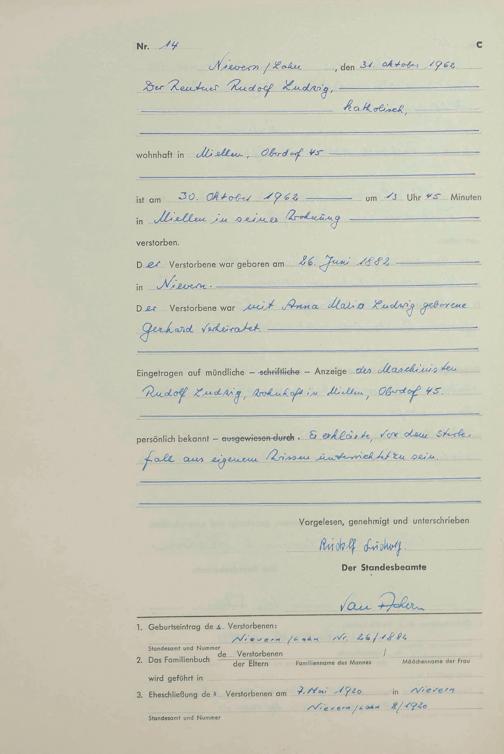 Nr. 14 C
Nievern/Lahn, den 31. Oktober 1962
Der Rentner Rudolf Ludwig,
katholisch,
wohnhaft in Miellen, Oberdorf 45
ist am 30. Oktober 1962 um 13 Uhr 45 Minuten
in Miellen in seiner Wohnung
verstorben.
Der Verstorbene war geboren am 26. Juni 1882
in Nievern.
Der Verstorbene war mit Anna Maria Ludwig geborene
Gerhard verheiratet
Eingetragen auf mündliche – schriftliche – Anzeige des Maschinisten
Rudolf Ludwig, wohnhaft in Miellen, Oberdorf 45.
persönlich bekannt – ausgewiesen durch. Er erklärte, von dem Sterbe-
fall aus eigenem Wissen unterrichtet zu sein.
Vorgelesen, genehmigt und unterschrieben
Rudolf Ludwig.
Der Standesbeamte
1. Geburtseintrag des Verstorbenen:
Nievern/Lahn Nr. 26/1882
Standesamt und Nummer
2. Das Familienbuch de Verstorbenen /
der Eltern Familienname des Mannes Mädchenname der Frau
wird geführt in
3. Eheschließung des Verstorbenen am 7. Mai 1920 in Nievern
Nievern/Lahn 8/1920
Standesamt und Nummer